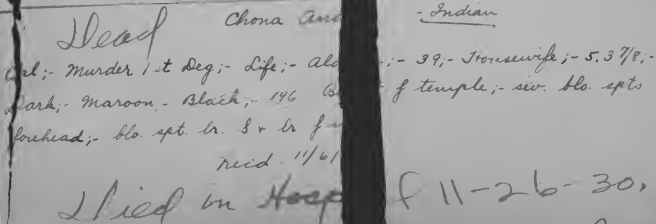 Dead Chona And - Indian
Cal;- Murder 1st Deg;- Life;- Ala ;- 39;- Housewife;- 5.3 7/8;-
Dark;- Maroon - Black;- 146 f temple;- sev. blo. spts
forehead;- blo. spt. br. & br f
recd. 11/6/
Died in Hosp f 11-26-30.